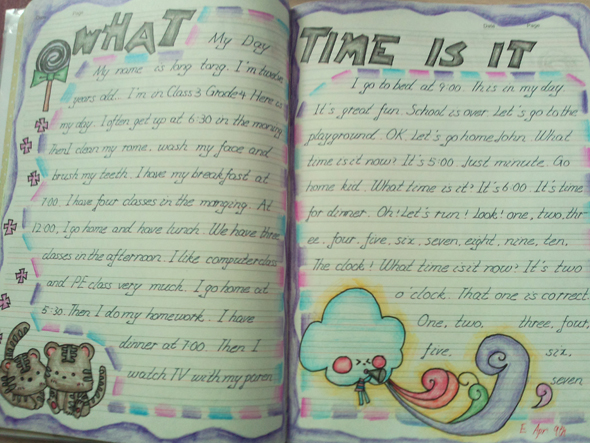 WHAT
My Day
My name is long tang. I'm twelve
years old. I'm in Class 3 Grade 4. Here is
my day. I often get up at 6:30 in the morning.
Then I clean my rome. wash my face and
brush my teeth. I have my breakfast at
7:00. I have four classes in the manging. At
12:00, I go home and have lunch. We have three
classes in the afternoon. I like computer class
and PE class very much. I go home at
5:30. Then I do my homework. I have
dinner at 7:00. Then I
watch TV with my paren
TIME IS IT
Date
Page
I go to bed at 9:00. This in my day.
It's great fun. School is over. Let's go to the
playground. OK. Let's go home, John. What
time is it now? It's 5:00. Just minute. Go
home kid. What time is it? It's 6:00. It's time
for dinner. Oh! Let's run! Look! one, two, thr-
ee, four, five, six, seven, eight, nine, ten,
The clock! What time is it now? It's two
o'clock. That one is correct
One, two, three, four,
five, six,
seven